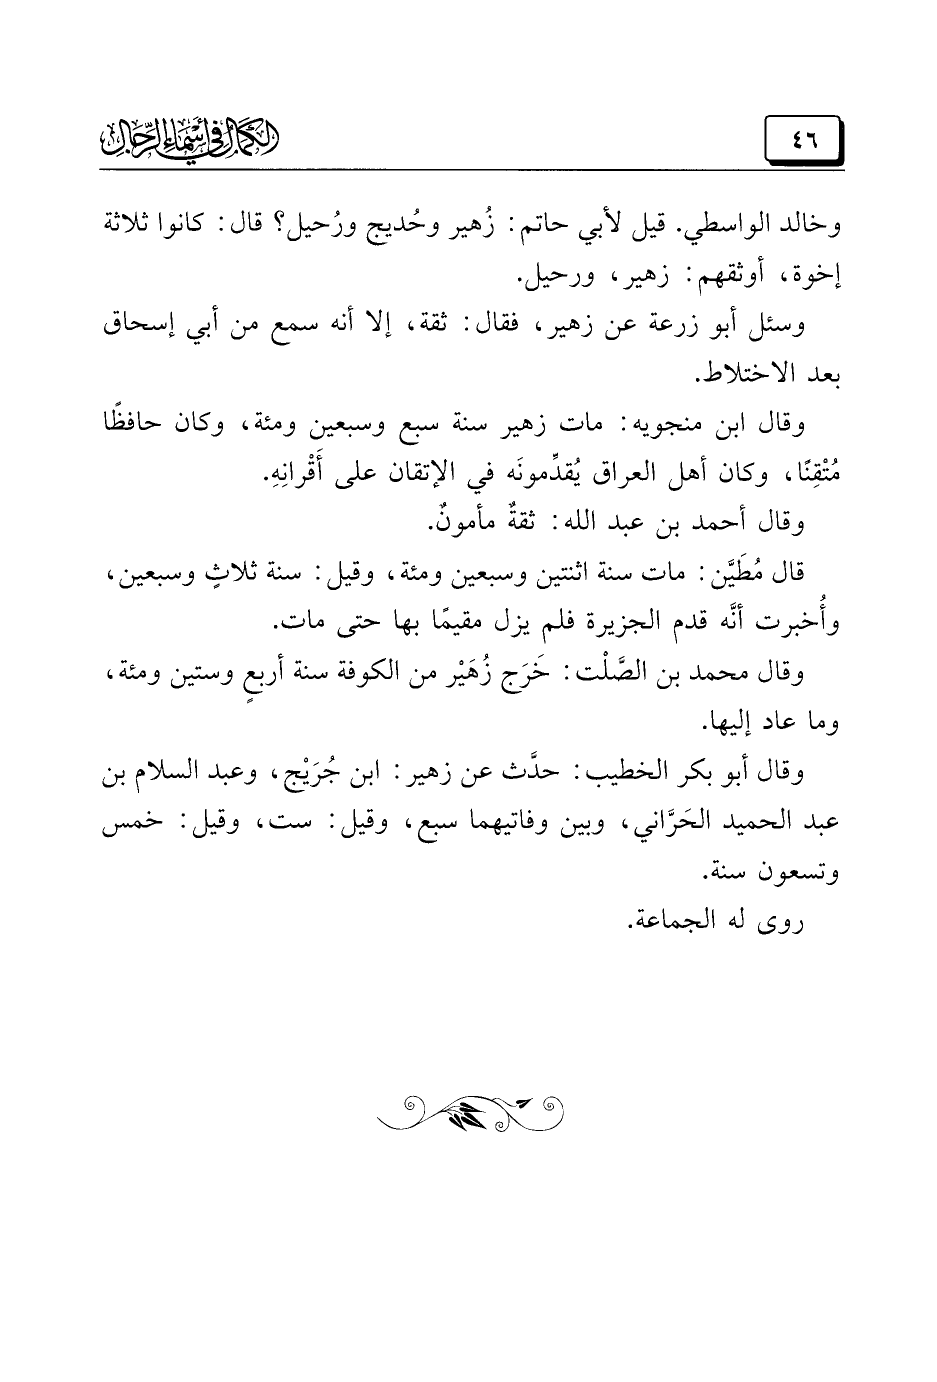 ٤٦
الكمال في أسماء الرجال
وخالد الواسطي. قيل لأبي حاتم: زُهير وحُديج ورُحيل؟ قال: كانوا ثلاثة
إخوة، أوثقهم: زهير، ورحيل.
وسئل أبو زرعة عن زهير، فقال: ثقة، إلا أنه سمع من أبي إسحاق
بعد الاختلاط.
وقال ابن منجويه: مات زهير سنة سبع وسبعين ومئة، وكان حافظًا
مُتْقِنًا، وكان أهل العراق يُقدِّمونَه في الإتقان على أَقْرانِهِ.
وقال أحمد بن عبد الله: ثقةٌ مأمونٌ.
قال مُطَيَّن: مات سنة اثنتين وسبعين ومئة، وقيل: سنة ثلاثٍ وسبعين،
وأُخبرت أنَّه قدم الجزيرة فلم يزل مقيمًا بها حتى مات.
وقال محمد بن الصَّلْت: خَرَج زُهَيْر من الكوفة سنة أربعٍ وستين ومئة،
وما عاد إليها.
وقال أبو بكر الخطيب: حدَّث عن زهير: ابن جُرَيْج، وعبد السلام بن
عبد الحميد الحَرَّاني، وبين وفاتيهما سبع، وقيل: ست، وقيل: خمس
وتسعون سنة.
روى له الجماعة.